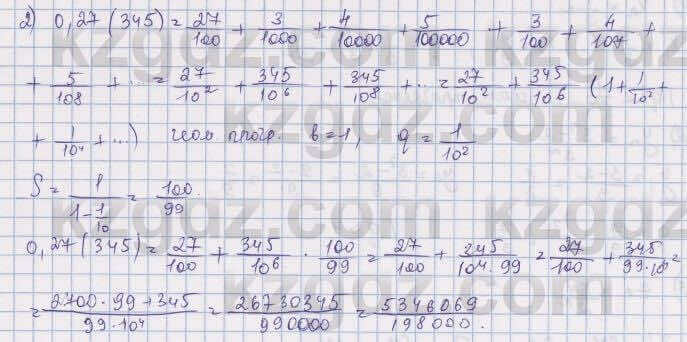 2) 0,27(345) = 27/100 + 3/1000 + 4/10000 + 5/100000 + 3/100 + 4/107 +
+ 5/108 + ... = 27/10² + 345/10⁶ + 345/10⁸ + ... = 27/10² + 345/10⁶ (1 + 1/10² +
+ 1/10⁴ + ...) геом прогр. b = 1, q = 1/10²
S = 1/(1 - 1/10) = 100/99.
0,27(345) = 27/100 + 345/10⁶ · 100/99 = 27/100 + 345/(10⁴·99) = 27/100 + 345/(99·10⁴) =
= (2700·99+345)/(99·10⁴) = 26730345/990000 = 5346069/198000.
kzgdz.com